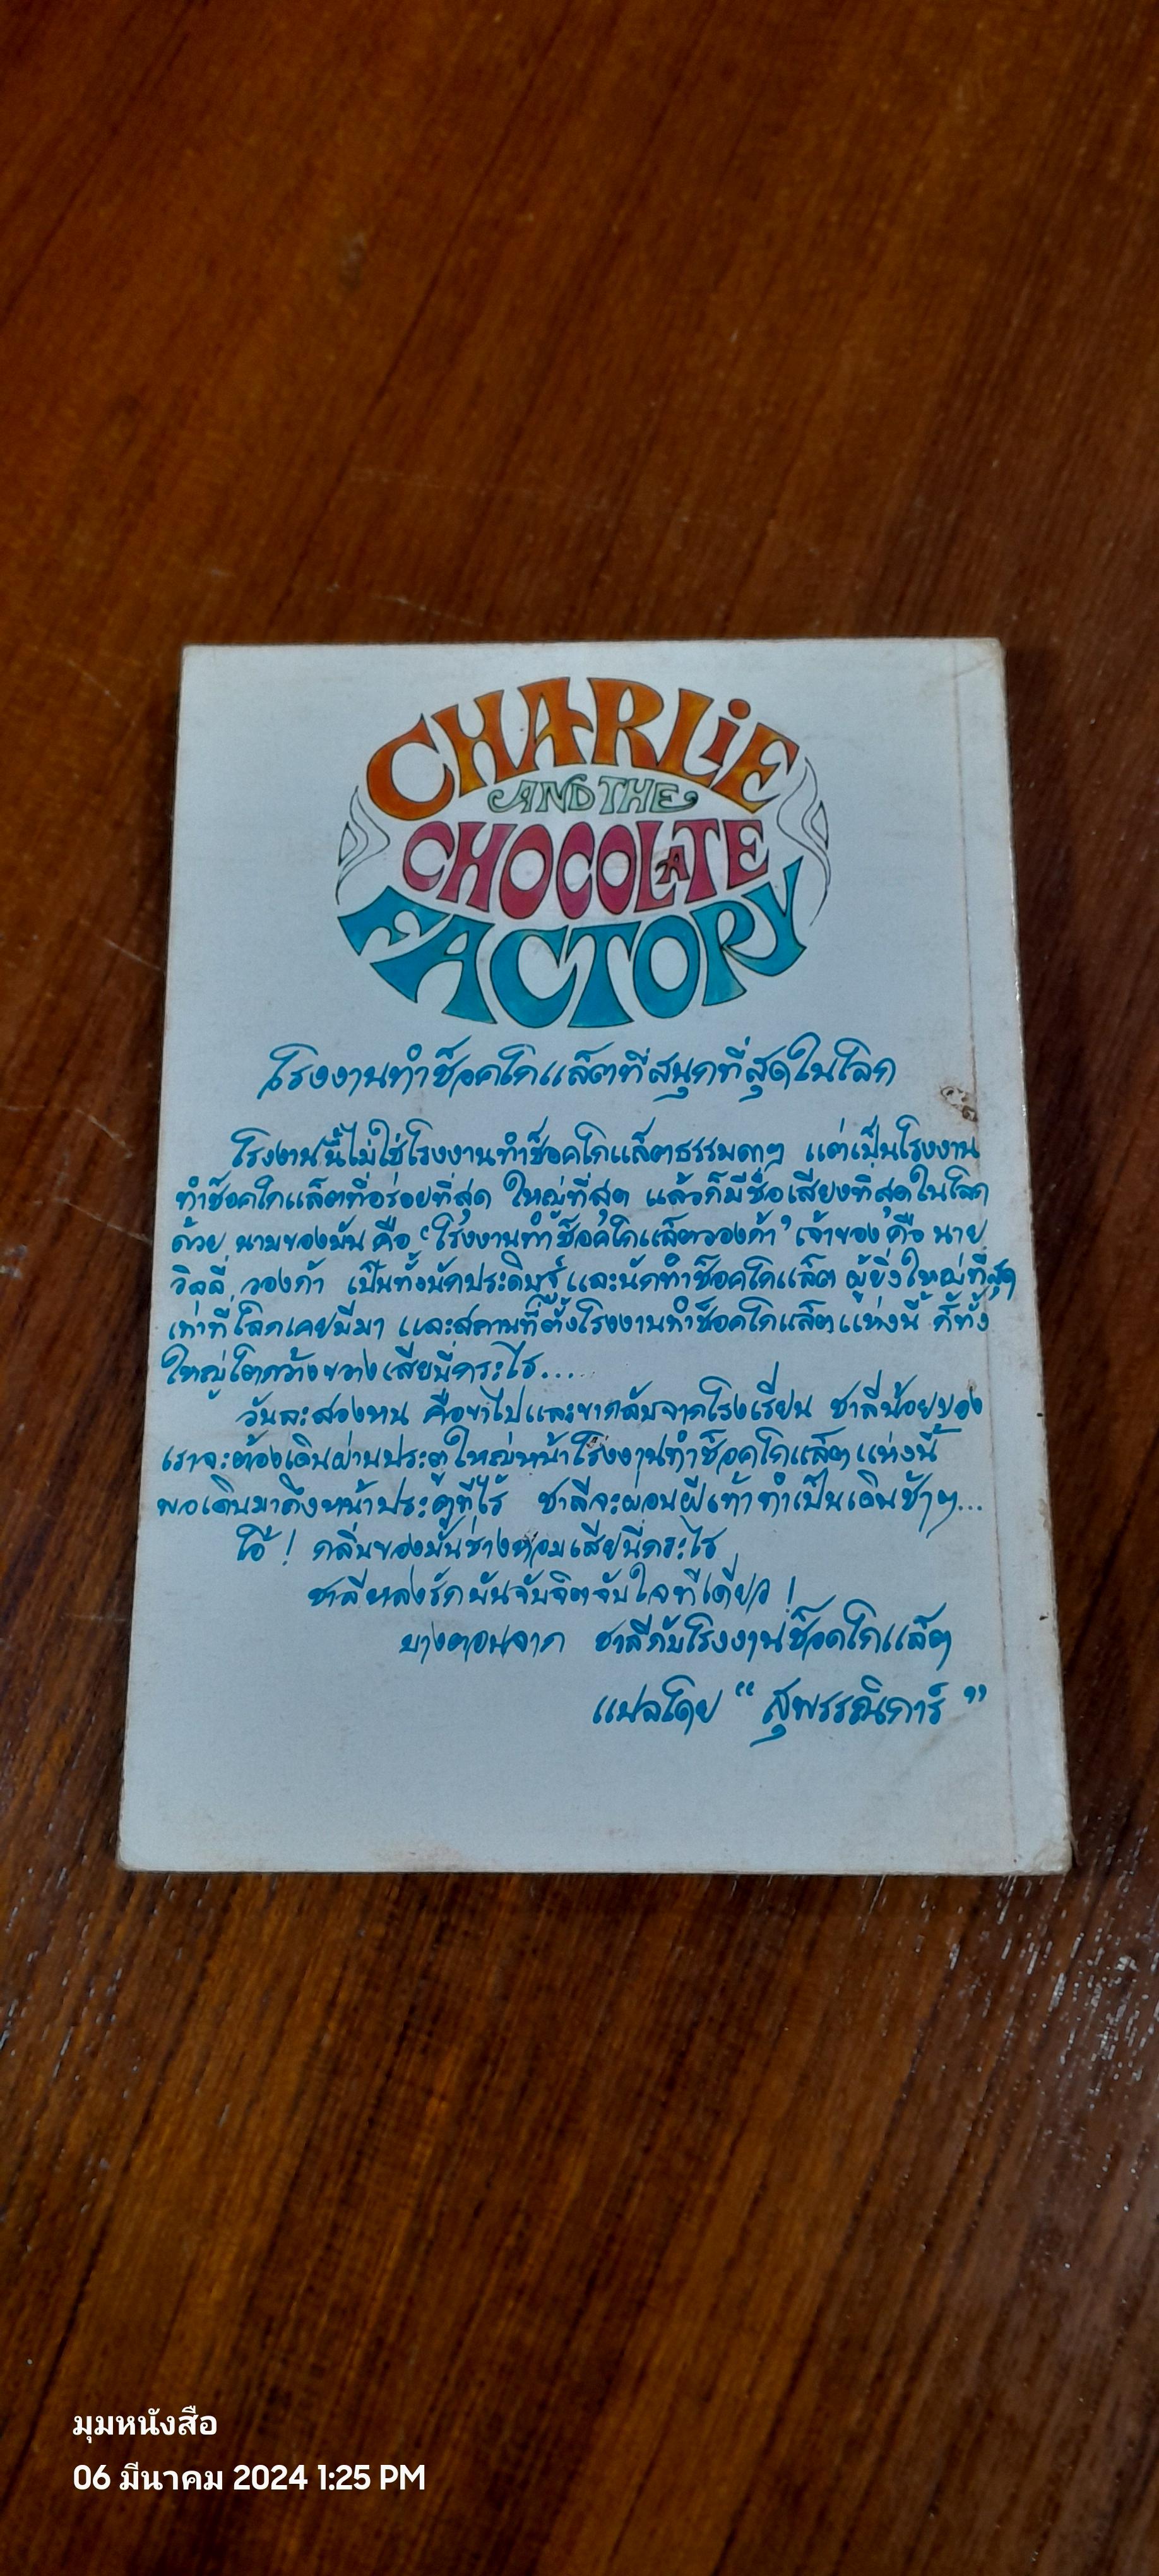 CHARLIE
AND THE
CHOCOLATE
FACTORY
โรงงานทำช็อคโกแล็ตที่สนุกที่สุดในโลก
โรงงานนี้ไม่ใช่โรงงานทำช็อคโกแล็ตธรรมดาๆ แต่เป็นโรงงาน
ทำช็อคโกแล็ตที่อร่อยที่สุด ใหญ่ที่สุด แล้วก็มีชื่อเสียงที่สุดในโลก
ด้วย นามของมันคือ ‘โรงงานทำช็อคโกแล็ตวองก้า’ เจ้าของคือ นาย
วิลลี่ วองก้า เป็นทั้งนักประดิษฐ์และนักทำช็อคโกแล็ต ผู้ยิ่งใหญ่ที่สุด
เท่าที่โลกเคยมีมา และสถานที่ตั้งโรงงานทำช็อคโกแล็ตแห่งนี้ ก็ทั้ง
ใหญ่โตกว้างขวางเสียนี่กระไร...
วันละสองหน คือขาไปและขากลับจากโรงเรียน ชาลีน้อยของ
เราจะต้องเดินผ่านประตูใหญ่หน้าโรงงานทำช็อคโกแล็ตแห่งนี้
พอเดินมาถึงหน้าประตูทีไร ชาลีจะผ่อนฝีเท้าทำเป็นเดินช้าๆ...
โอ้ ! กลิ่นของมันช่างหอมเสียนี่กระไร
ชาลีหลงรักมันจับจิตจับใจทีเดียว !
บางตอนจาก ชาลีกับโรงงานช็อคโกแล็ต
แปลโดย “ สุพรรณิการ์ ”
มุมหนังสือ
06 มีนาคม 2024 1:25 PM